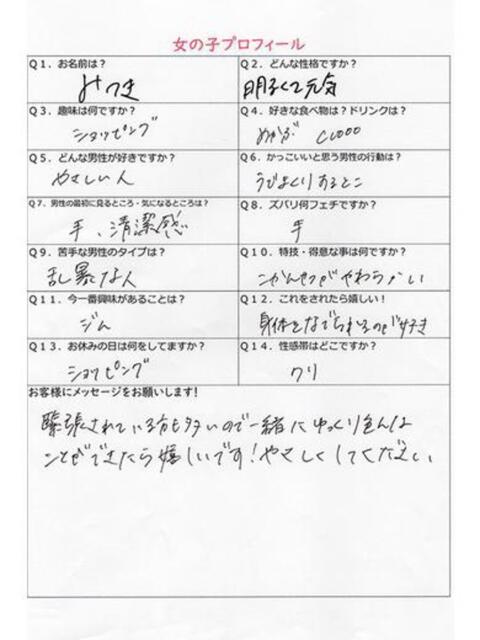 女の子プロフィール
Q1．お名前は？
みつき
Q2．どんな性格ですか？
明るくて元気
Q3．趣味は何ですか？
ショッピング
Q4．好きな食べ物は？ドリンクは？
めかぶ
Q5．どんな男性が好きですか？
やさしい人
Q6．かっこいいと思う男性の行動は？
Q7．男性の最初に見るところ・気になるところは？
手、清潔感
Q8．ズバリ何フェチですか？
手
Q9．苦手な男性のタイプは？
乱暴な人
Q10．特技・得意な事は何ですか？
かんせつがやわらかい
Q11．今一番興味があることは？
ジム
Q12．これをされたら嬉しい！
身体をなでられるのが好き
Q13．お休みの日は何をしてますか？
ショッピング
Q14．性感帯はどこですか？
クリ
お客様にメッセージをお願いします！
緊張されている方も多いので一緒にゆっくり色んな
ことができたら嬉しいです！やさしくしてください